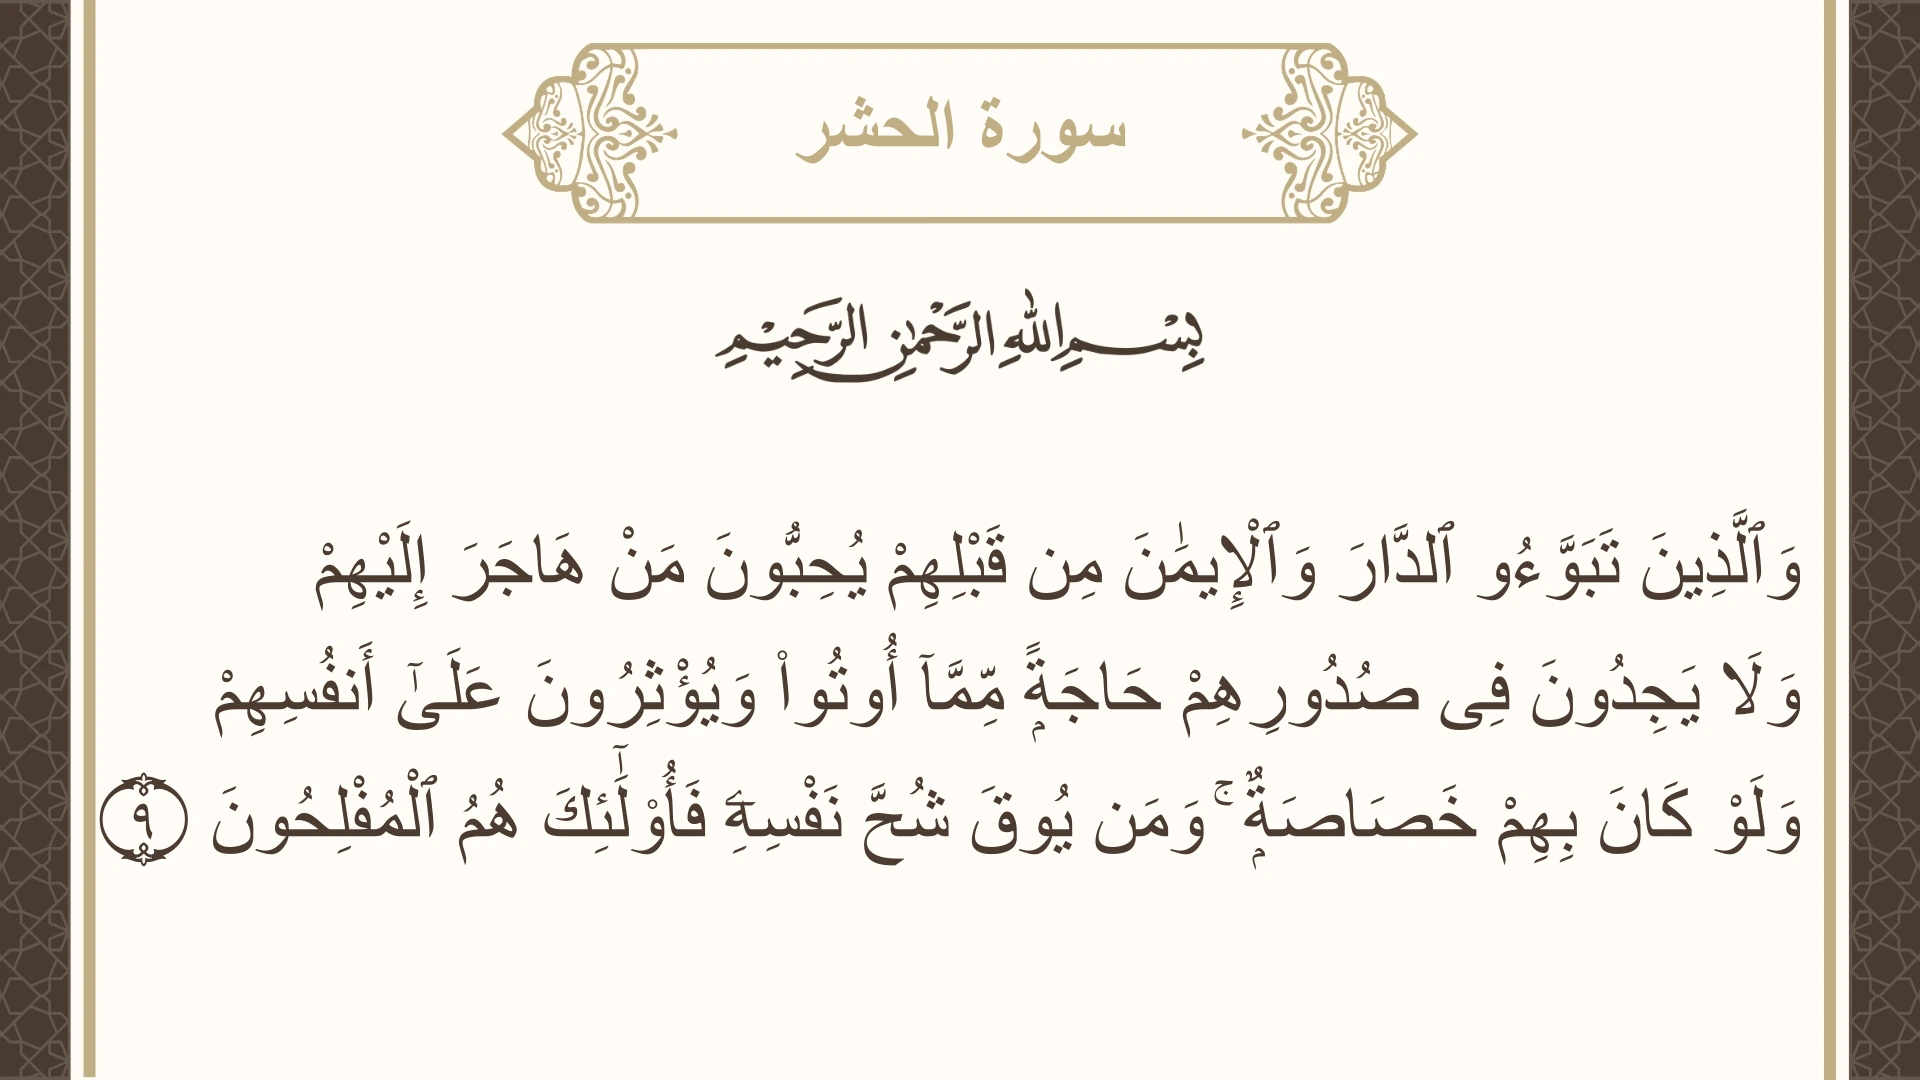 سورة الحشر
بِسْمِ اللهِ الرَّحْمٰنِ الرَّحِيْمِ
وَٱلَّذِينَ تَبَوَّءُو ٱلدَّارَ وَٱلْإِيمَٰنَ مِن قَبْلِهِمْ يُحِبُّونَ مَنْ هَاجَرَ إِلَيْهِمْ
وَلَا يَجِدُونَ فِى صُدُورِهِمْ حَاجَةًۭ مِّمَّآ أُوتُوا۟ وَيُؤْثِرُونَ عَلَىٰٓ أَنفُسِهِمْ
وَلَوْ كَانَ بِهِمْ خَصَاصَةٌۭ ۚ وَمَن يُوقَ شُحَّ نَفْسِهِۦ فَأُو۟لَٰٓئِكَ هُمُ ٱلْمُفْلِحُونَ ٩